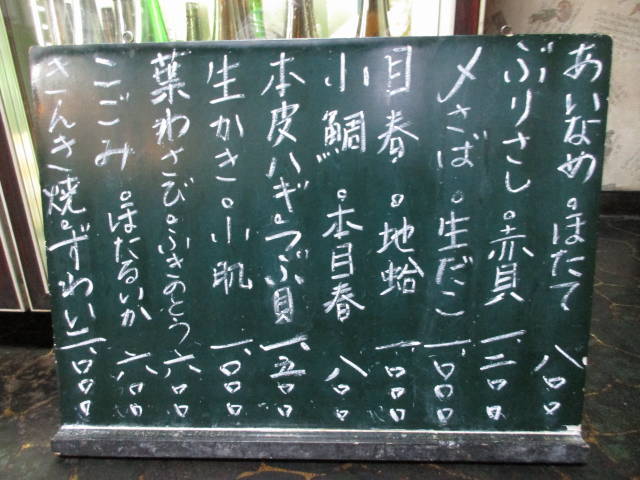 あいなめ。ほたて 八〇〇
ぶりさし。赤貝 一、二〇〇
〆さば。生だこ 一、〇〇〇
目春。地蛤 一、〇〇〇
小鯛。本目春 八〇〇
本皮ハギ。つぶ貝 一、五〇〇
生かき。小肌 一、〇〇〇
葉わさび。ふきのとう 六〇〇
こごみ。ほたるいか 六〇〇
きんき焼。ずわい 一、〇〇〇